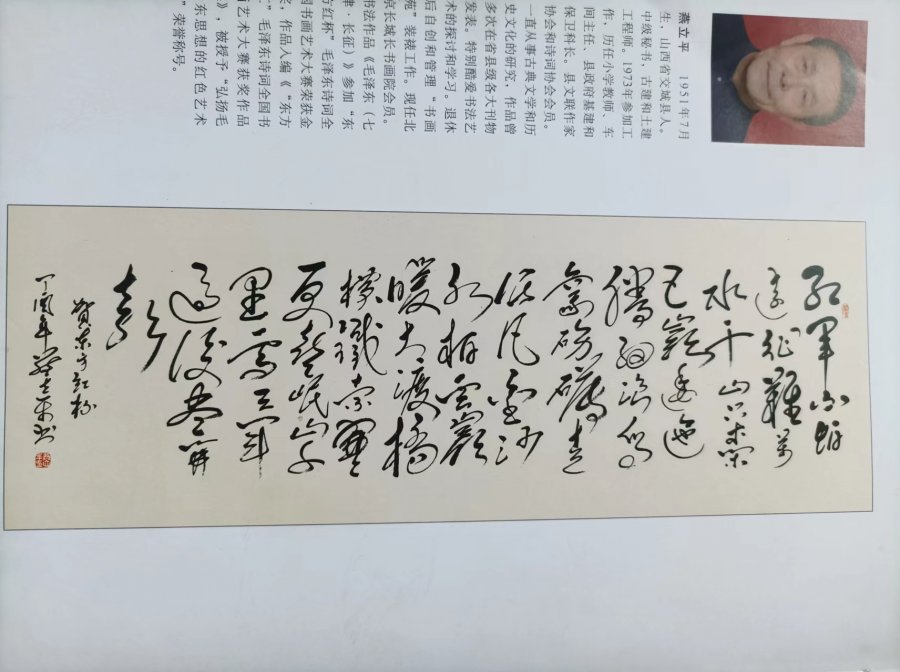 燕立平 1951年7月
生，山西省交城县人。
中级秘书、古建和土建
工程师。1973年参加工
作、历任小学教师、车
间主任、县政府基建和
保卫科长。县文联作家
协会和诗词协会会员。
一直从事古典文学和历
史文化的研究，作品曾
多次在省县级各大刊物
发表。特别酷爱书法艺
术的探讨和学习。退休
后自创和管理“书画
苑”装裱工作。现任北
京长城长书画院会员。
书法作品《毛泽东（七
律·长征）》参加“东
方红杯”毛泽东诗词全
国书画艺术大赛荣获金
奖，作品入编《“东方
”毛泽东诗词全国书
画艺术大赛获奖作品
》，被授予“弘扬毛
东思想的红色艺术
”荣誉称号。
红军不怕
远征难万
水千山只等闲
五岭逶迤
腾细浪乌
蒙磅礴走
泥丸金沙
水拍云崖
暖大渡桥
横铁索寒
更喜岷山千
里雪三军
过后尽开
颜
贺东方红杯
丁酉年燕立平书